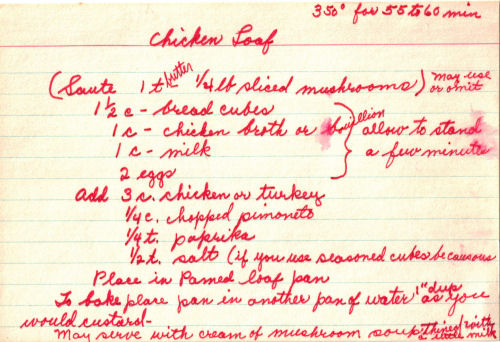 350° for 55 to 60 min
Chicken Loaf
(Saute 1 t butter 1/4 lb sliced mushrooms) may use or omit
1 1/2 c - bread cubes
1 c - chicken broth or bouillion } allow to stand
1 c - milk a few minutes
2 eggs
Add 3 c. chicken or turkey
1/4 c. chopped pimoneto
1/4 t. paprika
1/2 t. salt (if you use seasoned cubes be causous
Place in Pamed loaf pan
To bake place pan in another pan of water 1" dup as you
would custard -
May serve with cream of mushroom soup thined with a little milk